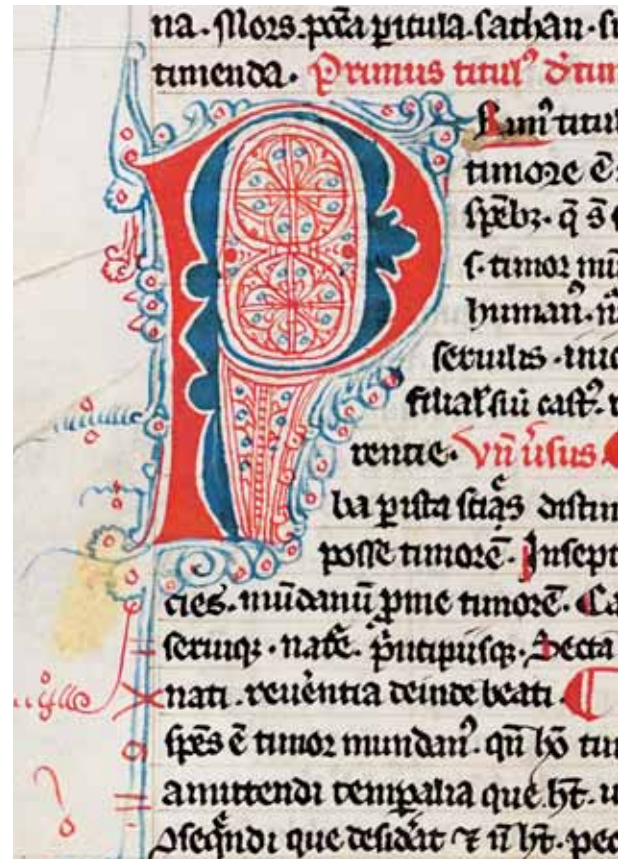 na. Mors. pōca pitula. sathan. su
timenda. Primus titul⁹ d̄ tim
P Rim⁹ titul
timore ē
spēbꝫ. q̄ s̄
s. timor mū
human⁹. n
seruilis. inic
filial' siū cast⁹.
rentie. Vn̄ ūsus.
ba pista sciās distin
posse timorē. Insept
cies. mūdanū pme timorē. Ca
seruiqꝫ. nat̄e. p̄ncipiisqꝫ. Secta
nati. reuēntia deinde beati.
spēs ē timor mundan⁹. qn̄ hō tim
amittendi tempalia que h̄t. u
ꝯseqn̄di que desid̄at ⁊ n̄ h̄t. pec